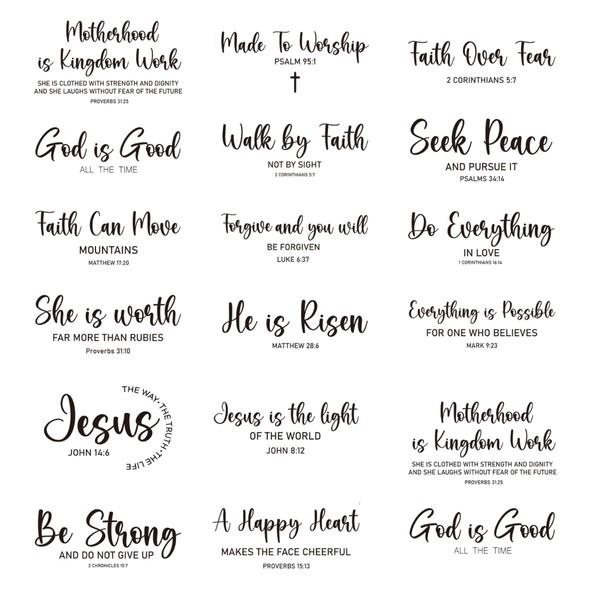 Motherhood
is Kingdom Work
SHE IS CLOTHED WITH STRENGTH AND DIGNITY
AND SHE LAUGHS WITHOUT FEAR OF THE FUTURE
PROVERBS 31:25
Made To Worship
PSALM 95:1
Faith Over Fear
2 CORINTHIANS 5:7
God is Good
ALL THE TIME
Walk by Faith
NOT BY SIGHT
2 CORINTHIANS 5:7
Seek Peace
AND PURSUE IT
PSALMS 34:14
Faith Can Move
MOUNTAINS
MATTHEW 17:20
Forgive and you will
BE FORGIVEN
LUKE 6:37
Do Everything
IN LOVE
1 CORINTHIANS 16:14
She is worth
FAR MORE THAN RUBIES
Proverbs 31:10
He is Risen
MATTHEW 28:6
Everything is Possible
FOR ONE WHO BELIEVES
MARK 9:23
Jesus
THE WAY·THE TRUTH·THE LIFE
JOHN 14:6
Jesus is the light
OF THE WORLD
JOHN 8:12
Motherhood
is Kingdom Work
SHE IS CLOTHED WITH STRENGTH AND DIGNITY
AND SHE LAUGHS WITHOUT FEAR OF THE FUTURE
PROVERBS 31:25
Be Strong
AND DO NOT GIVE UP
2 CHRONICLES 15:7
A Happy Heart
MAKES THE FACE CHEERFUL
PROVERBS 15:13
God is Good
ALL THE TIME